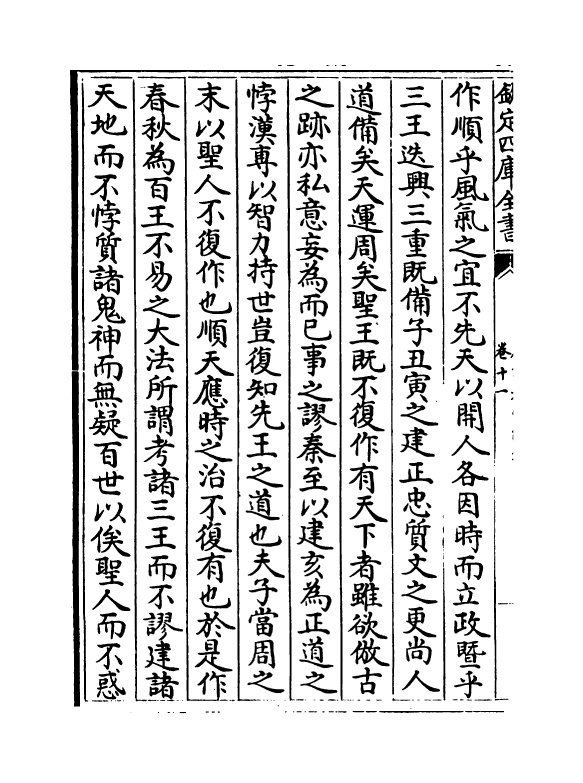 欽定四庫全書
卷十一
作順乎風氣之宜不先天以開人各因時而立政暨乎
三王迭興三重既備子丑寅之建正忠質文之更尚人
道備矣天運周矣聖王既不復作有天下者雖欲倣古
之跡亦私意妄為而已事之謬秦至以建亥為正道之
悖漢專以智力持世豈復知先王之道也夫子當周之
末以聖人不復作也順天應時之治不復有也於是作
春秋為百王不易之大法所謂考諸三王而不謬建諸
天地而不悖質諸鬼神而無疑百世以俟聖人而不惑